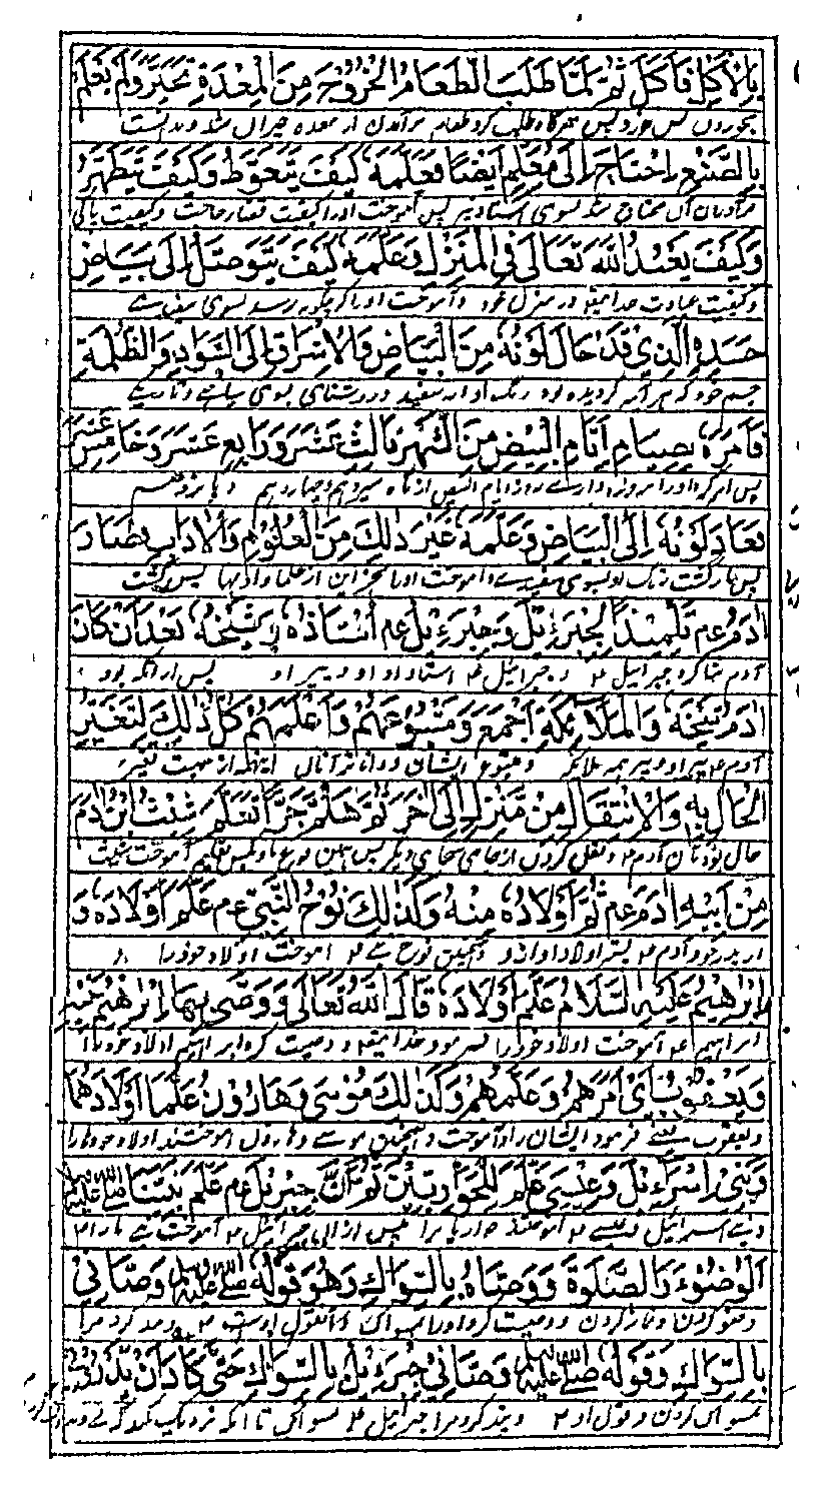 بِالْاَكْلِ فَاَكَلَ ثُمَّ لَمَّا طَلَبَ الطَّعَامُ الْخُرُوْجَ مِنَ الْمِعْدَةِ تَحَيَّرَ وَلَمْ يَعْلَمْ
بخوردن پس خورد پس هرگاه طلب کرد طعام برآمدن از معده حیران شد و ندانست
بِالصَّنِيْعِ اِحْتَاجَ اِلٰى مُعَلِّمٍ اَيْضًا فَعَلَّمَهٗ كَيْفَ يَتَغَوَّطُ وَكَيْفَ يَتَطَهَّرُ
محتاج شد بسوی استاد نیز پس آموخت اورا کیفیت قضاء حاجت و کیفیت پاکی
وَكَيْفَ يَعْبُدُ اللّٰهَ تَعَالٰى فِي الْمَنْزِلِ وَعَلَّمَهٗ كَيْفَ يَتَوَصَّلُ اِلٰى بَيَاضِ
وکیفیت عبادت خدایتعالی در منزل خود و آموخت اورا که چگونه رسد بسوی سفیدی
جَسَدِهِ الَّذِيْ قَدْ حَالَ لَوْنُهٗ مِنَ الْبَيَاضِ وَالْاِشْرَاقِ اِلَى السَّوَادِ وَالظُّلْمَةِ
جسم خود که هر آینه گردیده بود رنگ او از سفیدی و روشنائی بسوی سیاهی و تاریکی
فَاَمَرَهٗ بِصِيَامِ اَيَّامِ الْبِيْضِ مِنَ الشَّهْرِ ثَالِثَ عَشَرَ وَرَابِعَ عَشَرَ وَخَامِسَ عَشَرَ
پس امر کرد اورا بروزه ایام البیض از ماه سیزدهم و چهاردهم و پانزدهم
فَعَادَ لَوْنُهٗ اِلَى الْبَيَاضِ وَعَلَّمَهٗ غَيْرَ ذٰلِكَ مِنَ الْعُلُوْمِ وَالْاٰدَابِ فَصَارَ
پس بازگشت رنگ او بسوی سفیدی و آموخت اورا بجز این از علما و ادبها پس گشت
اٰدَمُ عم تِلْمِيْذًا لِجِبْرَءِيْلَ وَجِبْرَءِيْلُ عم اُسْتَاذُهٗ وَشَيْخُهٗ بَعْدَ اَنْ كَانَ
آدم شاگرد جبرائیل ۴ و جبرائیل ۴ استاد او و پیر او پس از آنکه بود
اٰدَمُ شَيْخَهٗ وَالْمَلَآئِكَةِ اَجْمَعَ وَمَتْبُوْعَهُمْ وَاَعْلَمَهُمْ كُلُّ ذٰلِكَ لِتَغَيُّرِ
آدم ۴ پیر او و پیر همه ملائکه و متبوع ایشان و داناتر آنان اینهمه از جهت تغیر
الْحَالِ بِهٖ وَالْاِنْتِقَالِ مِنْ مَنْزِلٍ اِلٰى اٰخَرَ ثُمَّ هَلُمَّ جَرًّا تَعَلَّمَ شِيْثُ ابْنُ اٰدَمَ
حال بود بآن آدم ۴ و نقل کردن از جای بجای دیگر پس آموخت شیث
مِنْ اَبِيْهِ اٰدَمَ عم ثُمَّ اَوْلَادُهٗ مِنْهُ وَكَذٰلِكَ نُوْحُ النَّبِيُّ عم عَلَّمَ اَوْلَادَهٗ وَ
از پدر خود آدم ۴ پستر اولاد او از و و همچنین نوح نبی ۴ آموخت اولاد خودرا و
اِبْرٰهِيْمُ عَلَيْهِ السَّلَامُ عَلَّمَ اَوْلَادَهٗ قَالَ اللّٰهُ تَعَالٰى وَوَصّٰى بِهَا اِبْرٰهِيْمُ بَنِيْهِ
ابراهیم ۴ آموخت اولاد خودرا فرمود خدایتعالی و وصیت کرد ابراهیم اولاد خودرا
وَيَعْقُوْبُ اَيْ اَمَرَهُمْ وَعَلَّمَهُمْ وَكَذٰلِكَ مُوْسٰى وَهَارُوْنُ عَلَّمَا اَوْلَادَهُمَا
ویعقوب یعنی فرمود ایشان را و آموخت و همچنین موسی و هارون آموختند اولاد خودرا
وَبَنِيْ اِسْرَآءِيْلَ وَعِيْسٰى عَلَّمَ الْحَوَارِيِّيْنَ ثُمَّ اَنَّ جِبْرَءِيْلَ عم عَلَّمَ نَبِيَّنَا صلى الله عليه وسلم
و بنی اسرائیل و عیسی ۴ حواریانرا پس از آن جبرائیل ۴ آموخت نبی مارا
اَلْوُضُوْءَ وَالصَّلٰوةَ وَوَصَّاهُ بِالسِّوَاكِ وَهُوَ قَوْلُهٗ صلى الله عليه وسلم وَصَّانِيْ
وضو کردن و نماز کردن و وصیت کرد اورا بمسواک و آن قول اوست
بِالسِّوَاكِ وَقَوْلُهٗ صلى الله عليه وسلم وَصَّانِيْ جِبْرَءِيْلُ بِالسِّوَاكِ حَتّٰى كَادَ اَنْ
بمسواک کردن و قول او و پند کرد مرا جبرائیل ۴ بمسواک تا آنکه نزدیک